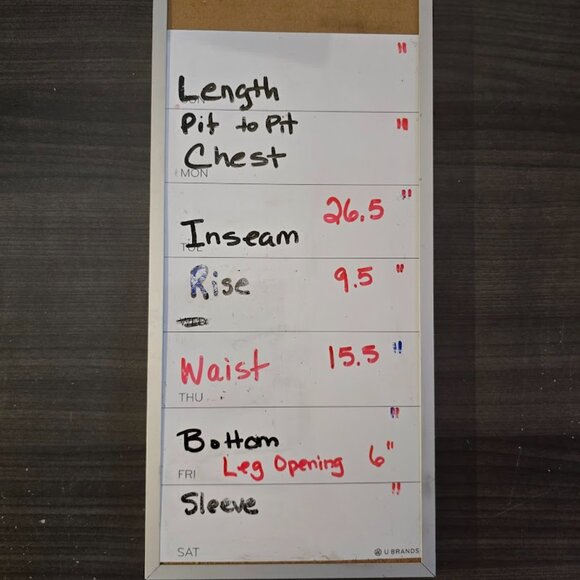 "
Length
Pit to Pit "
Chest
MON
26.5 "
Inseam
Rise 9.5 "
Waist 15.5 "
THU
"
Bottom
FRI Leg Opening 6"
Sleeve "
SAT U BRANDS